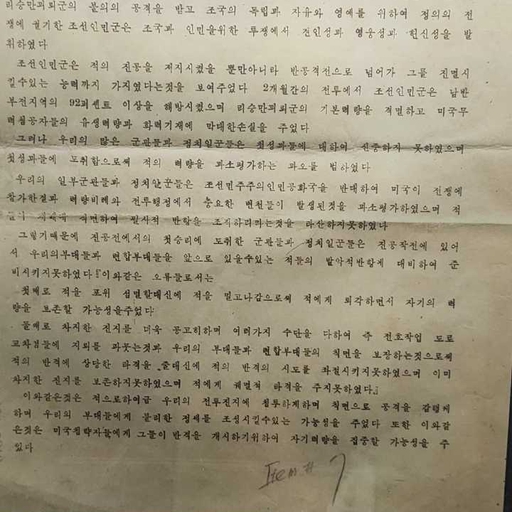 리승만괴뢰군의 불의의 공격을 받고 조국의 독립과 자유와 영예를 위하여 정의의 전
쟁에 궐기한 조선인민군은 조국과 인민을위한 투쟁에서 전인성과 영웅성과 헌신성을 발
휘하였다
조선인민군은 적의 진공을 저지시켰을 뿐만아니라 반공격전으로 넘어가 그를 진멸시
킬수있는 능력까지 가지였다는것을 보여주었다 2개월간의 전투에서 조선인민군은 남반
부전지역의 92퍼센트 이상을 해방시켰으며 리승만괴뢰군의 기본력량을 격멸하고 미국무
력침공자들의 유생력량과 화력기재에 막대한손실을 주었다
그러나 우리의 많은 군관들과 정치일군들은 첫성과들에 대하여 신중하지 못하였으며
첫성과들에 도취함으로써 적의 력량을 과소평가하는 과오를 범하였다
우리의 일부군관들과 정치일군들은 조선민주주의인민공화국을 반대하여 미국이 전쟁에
참가한결과 력량비례와 전투행정에서 중요한 변천들이 발생된것을 과소평가하였으며 적
필사적 반항을 조직하리라는것을 타산하지못하였다
그렇기때문에 진공전에서의 첫승리에 도취한 군관들과 정치일군들은 진공작전에 있어
서 우리의부대들과 련합부대들을 앞으로 있을수있는 적들의 발악적반항에 대비하여 준
비시키지못하였다 이와같은 오류들로서는
첫째로 적을 포위 섬멸할대신에 적을 밀고나감으로써 적에게 퇴각하면서 자기의 력
량을 보존할 가능성을주었다
둘째로 차지한 진지를 더욱 공고히하며 여러가지 수단을 다하여 즉 전호작업 도로
교차점들에 지뢰를 파묻는것과 우리의 부대들과 련합부대들의 측면을 보장하는것으로써
적의 반격에 상당한 타격을 줄대신에 적의 반격의 시도를 좌절시키지못하였으며 이미
차지한 진지를 보존하지못하였으며 적에게 궤멸적 타격을 주지못하였다
이와같은것은 적으로하여금 우리의 전투진지에 침투하게하며 측면으로 공격을 감행케
하며 우리의 부대들에게 불리한 정세를 조성시킬수있는 가능성을 주었다 또한 이와같
은것은 미국침략자들에게 그들이 반격을 개시하기위하여 자기력량을 집중할 가능성을 주
었다
Item # 7